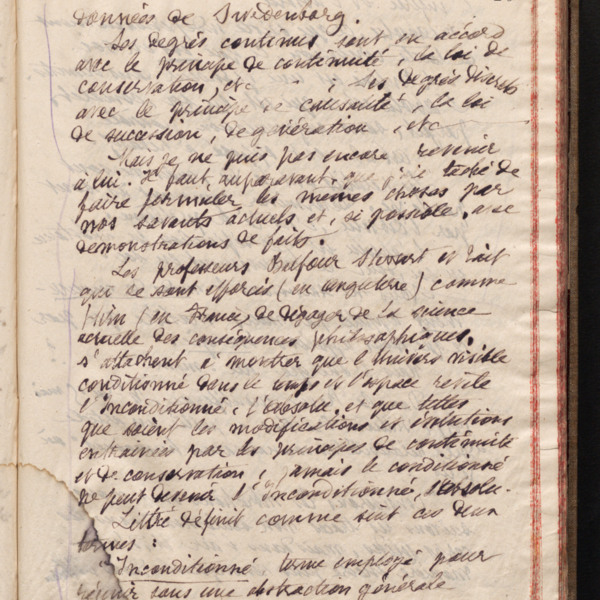 données de Swedenborg.
Les degrés continus sont en accord
avec le principe de continuité, la loi de
conservation, etc ; les degrés discrets
avec le principe de causauté, la loi
de succession, de génération, etc
Mais je ne puis pas encore revenir
à lui. Il faut, auparavant, que j'aie taché de
faire formuler les mêmes choses par
nos savants actuels et, si possible, avec
démonstrations de faits.
Les professeurs Balfour Stewart et Tait
qui se sont efforcés (en angleterre) comme
Hirn (en France) de dégager de la science
actuelle des conséquences philosophiques,
s'attachent à montrer que l'Univers visible
conditionné dans le temps et l'espace révèle
l'Inconditionné, l'Absolu, et que telles
que soient les modifications et évolutions
entrainées par les principes de continuité
et de conservation, jamais le conditionné
ne peut devenir l'Inconditionné, l'Absolu.
Littré définit comme suit ces deux
termes :
Inconditionné, terme employé pour
réunir sous une abstraction générale